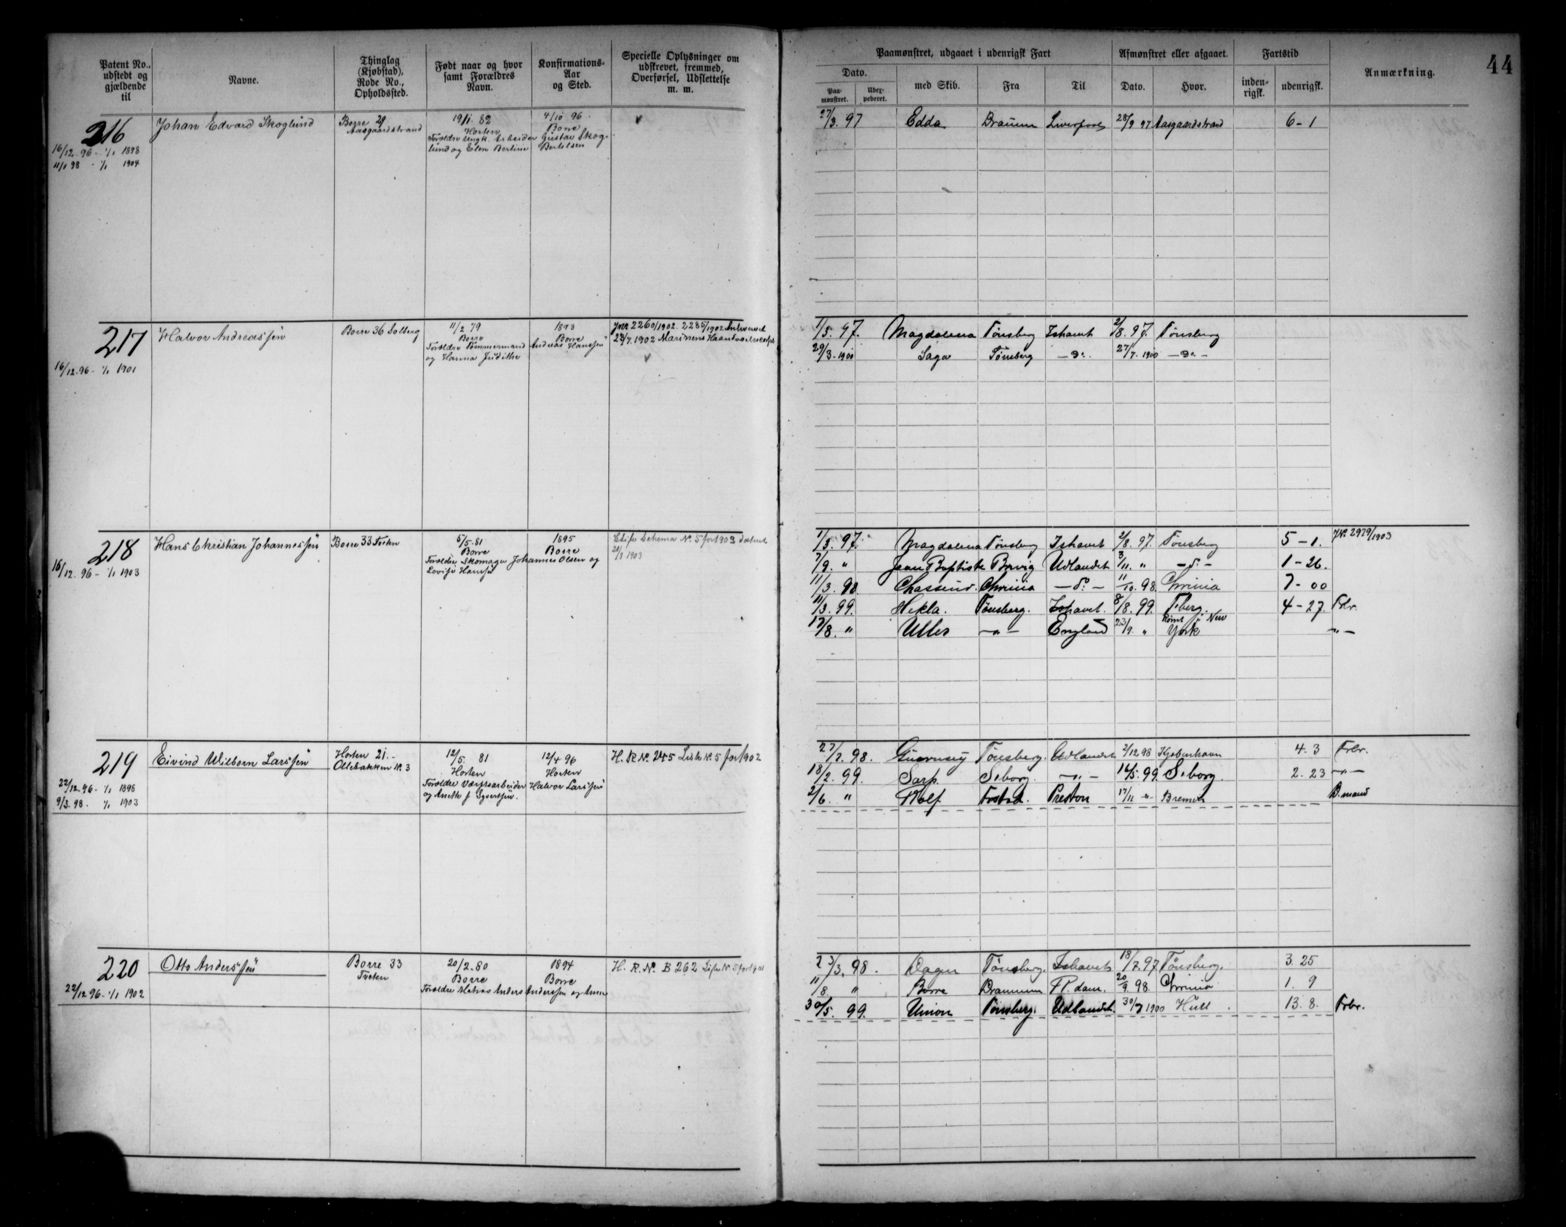 44
Patent No., udstedt og gjældende til
Navne.
Thinglag (Kjøbstad), Rode No., Opholdssted.
Født naar og hvor samt Forældres Navn.
Konfirmations-Aar og Sted.
Specielle Oplysninger om udskrevet, fremmed, Overførsel, Udslettelse m. m.
Paamønstret, udgaaet i udenrigsk Fart
Afmønstret eller afgaaet.
Fartstid
Anmærkning.
Dato.
Paa-mønstret.
med Skib.
Fra
Til
Dato.
Hvor.
inden-rigsk.
udenrigsk.
216 Johan Edvard Skoglund Borre 29 19/1 82 4/10 96
Aasgaardstrand Horten Borre
16/12 96 - 1/1 1898 Forældre Arbeider Gustav Skog-
11/1 98 - 1/1 1904 lund og Elen Bertine Bertelsen
27/3 97 Edda Liverpool 28/9 97 Aasgaardstrand 6-1
217 Halvor Andreassen Borre 36 Solberg 11/2 79 1893
Borre Borre
Forældre Tømmermand Andreas Hanssen
16/12 96 - 1/1 1901 og Hanna
22/7 1902 Marinens
1/5 97. Magdalena Tønsberg Ishavet 2/8 97. Tønsberg
29/3 1900 Saga Tønsberg -do- 27/7 1900 -do-
218 Hans Christian Johannessen Borre 33 Tveten 6/5 81 1895
Borre Borre
Forældre Skomager Johannes Olsen og
16/12 96 - 1/1 1903 Lovise Hanse
No. 5 for 1903
1/3 97. Magdalena Tønsberg Ishavet 2/8 97. Tønsberg 5-1. JNr. 2979/1903
7/9 " Jean Baptiste Udlandet 3/11 " -do- 1-26.
11/3 98. Chrinia -do- 11/10 98. Chrinia 7-00
11/3 99. Hekla. Tønsberg. Ishavet 8/8 99. Tberg. 4-27. Fbr.
17/8 " Ulles -"- England 23/9 " Rømt i New York -"-
219 Eivind Wilborn Larssen Horten 21. 12/5 81 12/4 96 H. R. No. 245 Liste No. 5 for 1902
Ollebakken No. 3 Horten Horten
22/12 96 - 1/1 1898 Forældre Værftsarbeider Halvor Larssen
9/3 98. 1/1 1903 og Anethe f. Syversen.
27/2 98. Guernsey Tønsberg. Udlandet 2/12 98 Kjøbenhavn 4. 3 Frbr.
18/2 99. Sarp. S.borg. -"- 14/5 99 S.borg. 2. 23 -"-
2/6 " Rolf Frstad. Preston 17/11 " Bremen B.mand
220 Otto Anderssen Borre 33 20/2 80 1894 H. R. No. B 262 Liste No. 5 for
Tveten Borre Borre
22/12 96 - 1/1 1902 Forældre Matros Anders Anderssen og Anne
23/3 98. Dagny Tønsberg. Ishavet 18/7 97. Tønsberg. 3. 25
11/8 " Borre Drammen R.dam. 20/9 98. Chrinia 1. 9
30/5 99. Union Tønsberg. Udlandet 30/7 1900 Hull. 13. 8. Frbr.